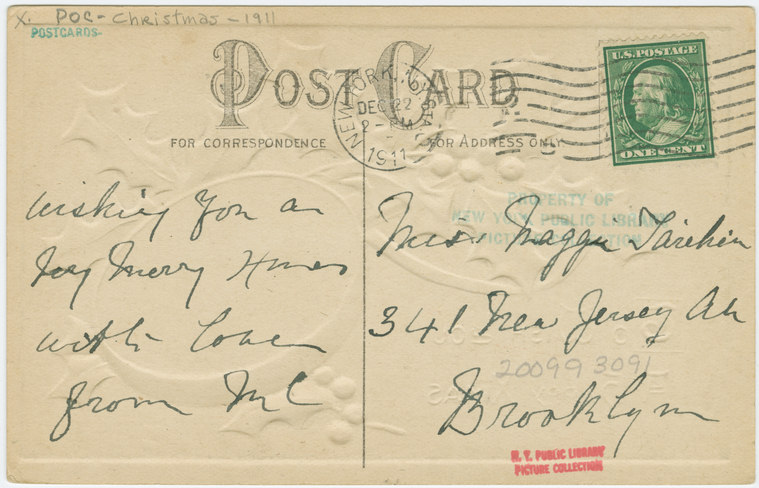 X. POC - Christmas - 1911
POSTCARDS
POST CARD
FOR CORRESPONDENCE
FOR ADDRESS ONLY
NEW YORK, N.Y.
STA
DEC 22
2 - PM
1911
U.S. POSTAGE
ONE CENT
PROPERTY OF
NEW YORK PUBLIC LIBRARY
PICTURE COLLECTION
wishing you an
Merry
with love
from
Miss Maggie
341 New Jersey Av
Brooklyn
200993091
N. Y. PUBLIC LIBRARY
PICTURE COLLECTION